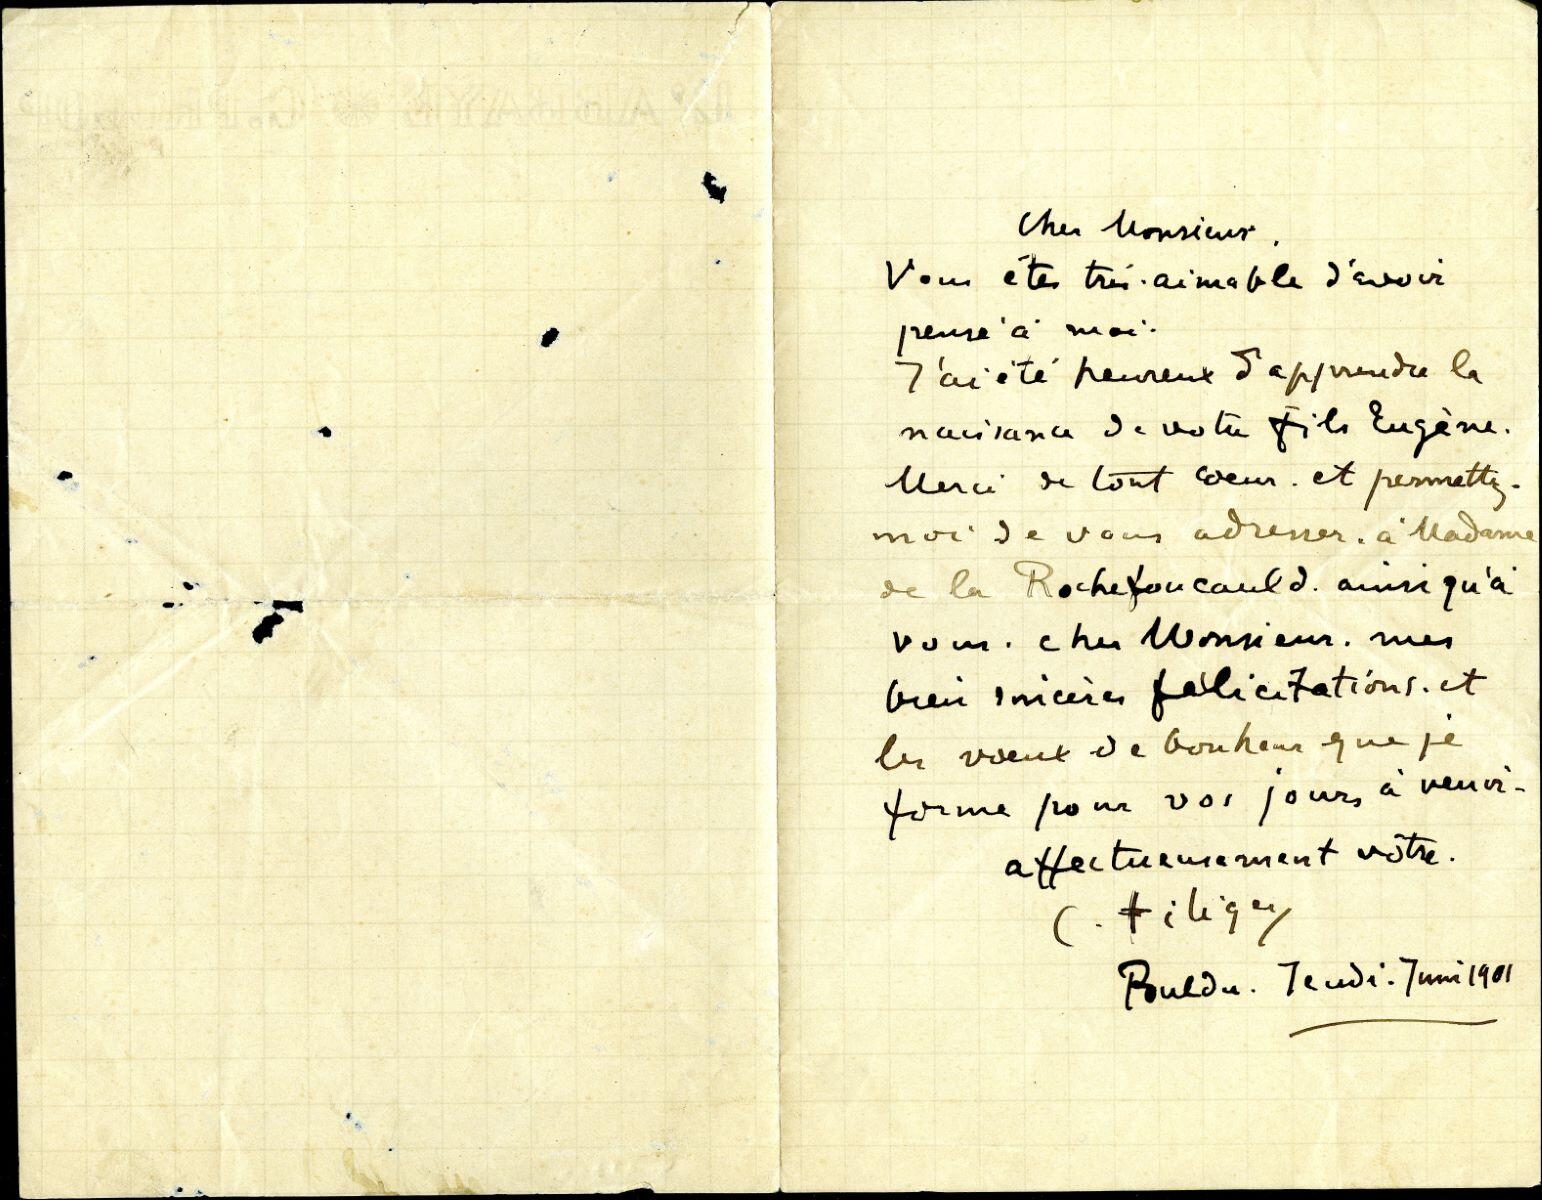 Cher Monsieur.
Vous êtes très-aimable d'avoir
pensé à moi.
J'ai été heureux d'apprendre la
naissance de votre fils Eugène.
Merci de tout coeur. et permettez-
moi de vous adresser. à Madame
de la Rochefoucauld. ainsi qu'à
vous. cher Monsieur. mes
bien sincères félicitations. et
les voeux de bonheur que je
forme pour vos jours à venir-
affectueusement vôtre.
C. Filiger
Pouldu. Jeudi. Juin 1901